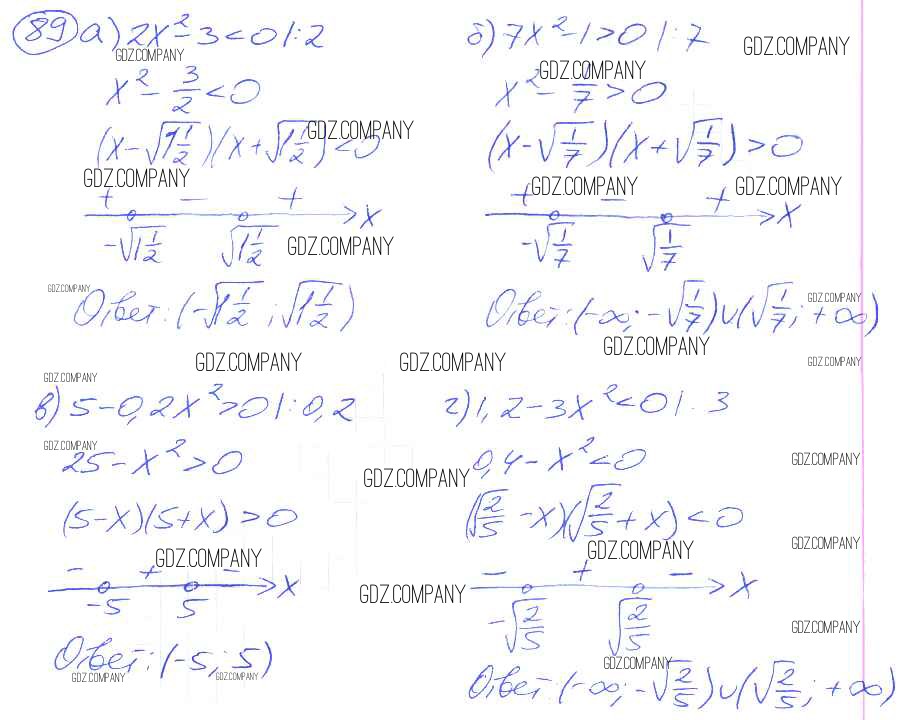 89 а) 2x² - 3 < 0 |: 2
GDZ.COMPANY
x² - 3/2 < 0
(x - √1 1/2)(x + √1 1/2) < 0
GDZ.COMPANY
GDZ.COMPANY
+ - + x
-√1 1/2 √1 1/2
GDZ.COMPANY
GDZ.COMPANY
Ответ: (-√1 1/2; √1 1/2)
б) 7x² - 1 > 0 |: 7
GDZ.COMPANY
GDZ.COMPANY
x² - 1/7 > 0
(x - √1/7)(x + √1/7) > 0
GDZ.COMPANY GDZ.COMPANY
+ - + x
-√1/7 √1/7
GDZ.COMPANY
Ответ: (-∞; -√1/7) ∪ (√1/7; +∞)
GDZ.COMPANY
GDZ.COMPANY GDZ.COMPANY
GDZ.COMPANY
GDZ.COMPANY
в) 5 - 0,2x² > 0 |: 0,2
GDZ.COMPANY
25 - x² > 0
GDZ.COMPANY
(5 - x)(5 + x) > 0
GDZ.COMPANY
- + - x
-5 5
GDZ.COMPANY
Ответ: (-5; 5)
GDZ.COMPANY GDZ.COMPANY
г) 1,2 - 3x² < 0 |: 3
0,4 - x² < 0
GDZ.COMPANY
(√2/5 - x)(√2/5 + x) < 0
GDZ.COMPANY
GDZ.COMPANY
- + - x
-√2/5 √2/5
GDZ.COMPANY
GDZ.COMPANY
Ответ: (-∞; -√2/5) ∪ (√2/5; +∞)